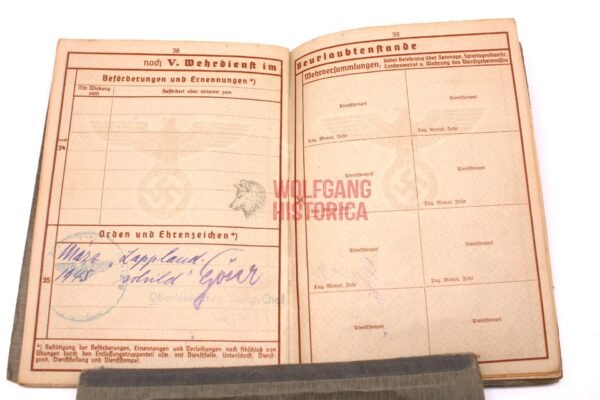 38
noch V. Wehrdienst im
Beförderungen und Ernennungen*)
Mit Wirkung vom
Befördert oder ernannt zum
34
Orden und Ehrenzeichen*)
35
März Lappland-
1945 schild"
*) Bestätigung der Beförderungen, Ernennungen und Verleihungen nach Abschluß von
Übungen durch den Entlassungstruppenteil usw. mit Dienststelle, Unterschrift, Dienst-
grad, Dienststellung und Dienststempel
39
Beurlaubtenstande
Wehrversammlungen,
dabei Belehrung über Spionage, Spionageabwehr,
Landesverrat u. Wahrung des Dienstgeheimnisses
Dienststempel
Dienststempel
Tag, Monat, Jahr
Tag, Monat, Jahr
Dienststempel
Dienststempel
36
Tag, Monat, Jahr
Tag, Monat, Jahr
Dienststempel
Dienststempel
Tag, Monat, Jahr
Tag, Monat, Jahr
Dienststempel
Dienststempel
WOLFGANG
HISTORICA